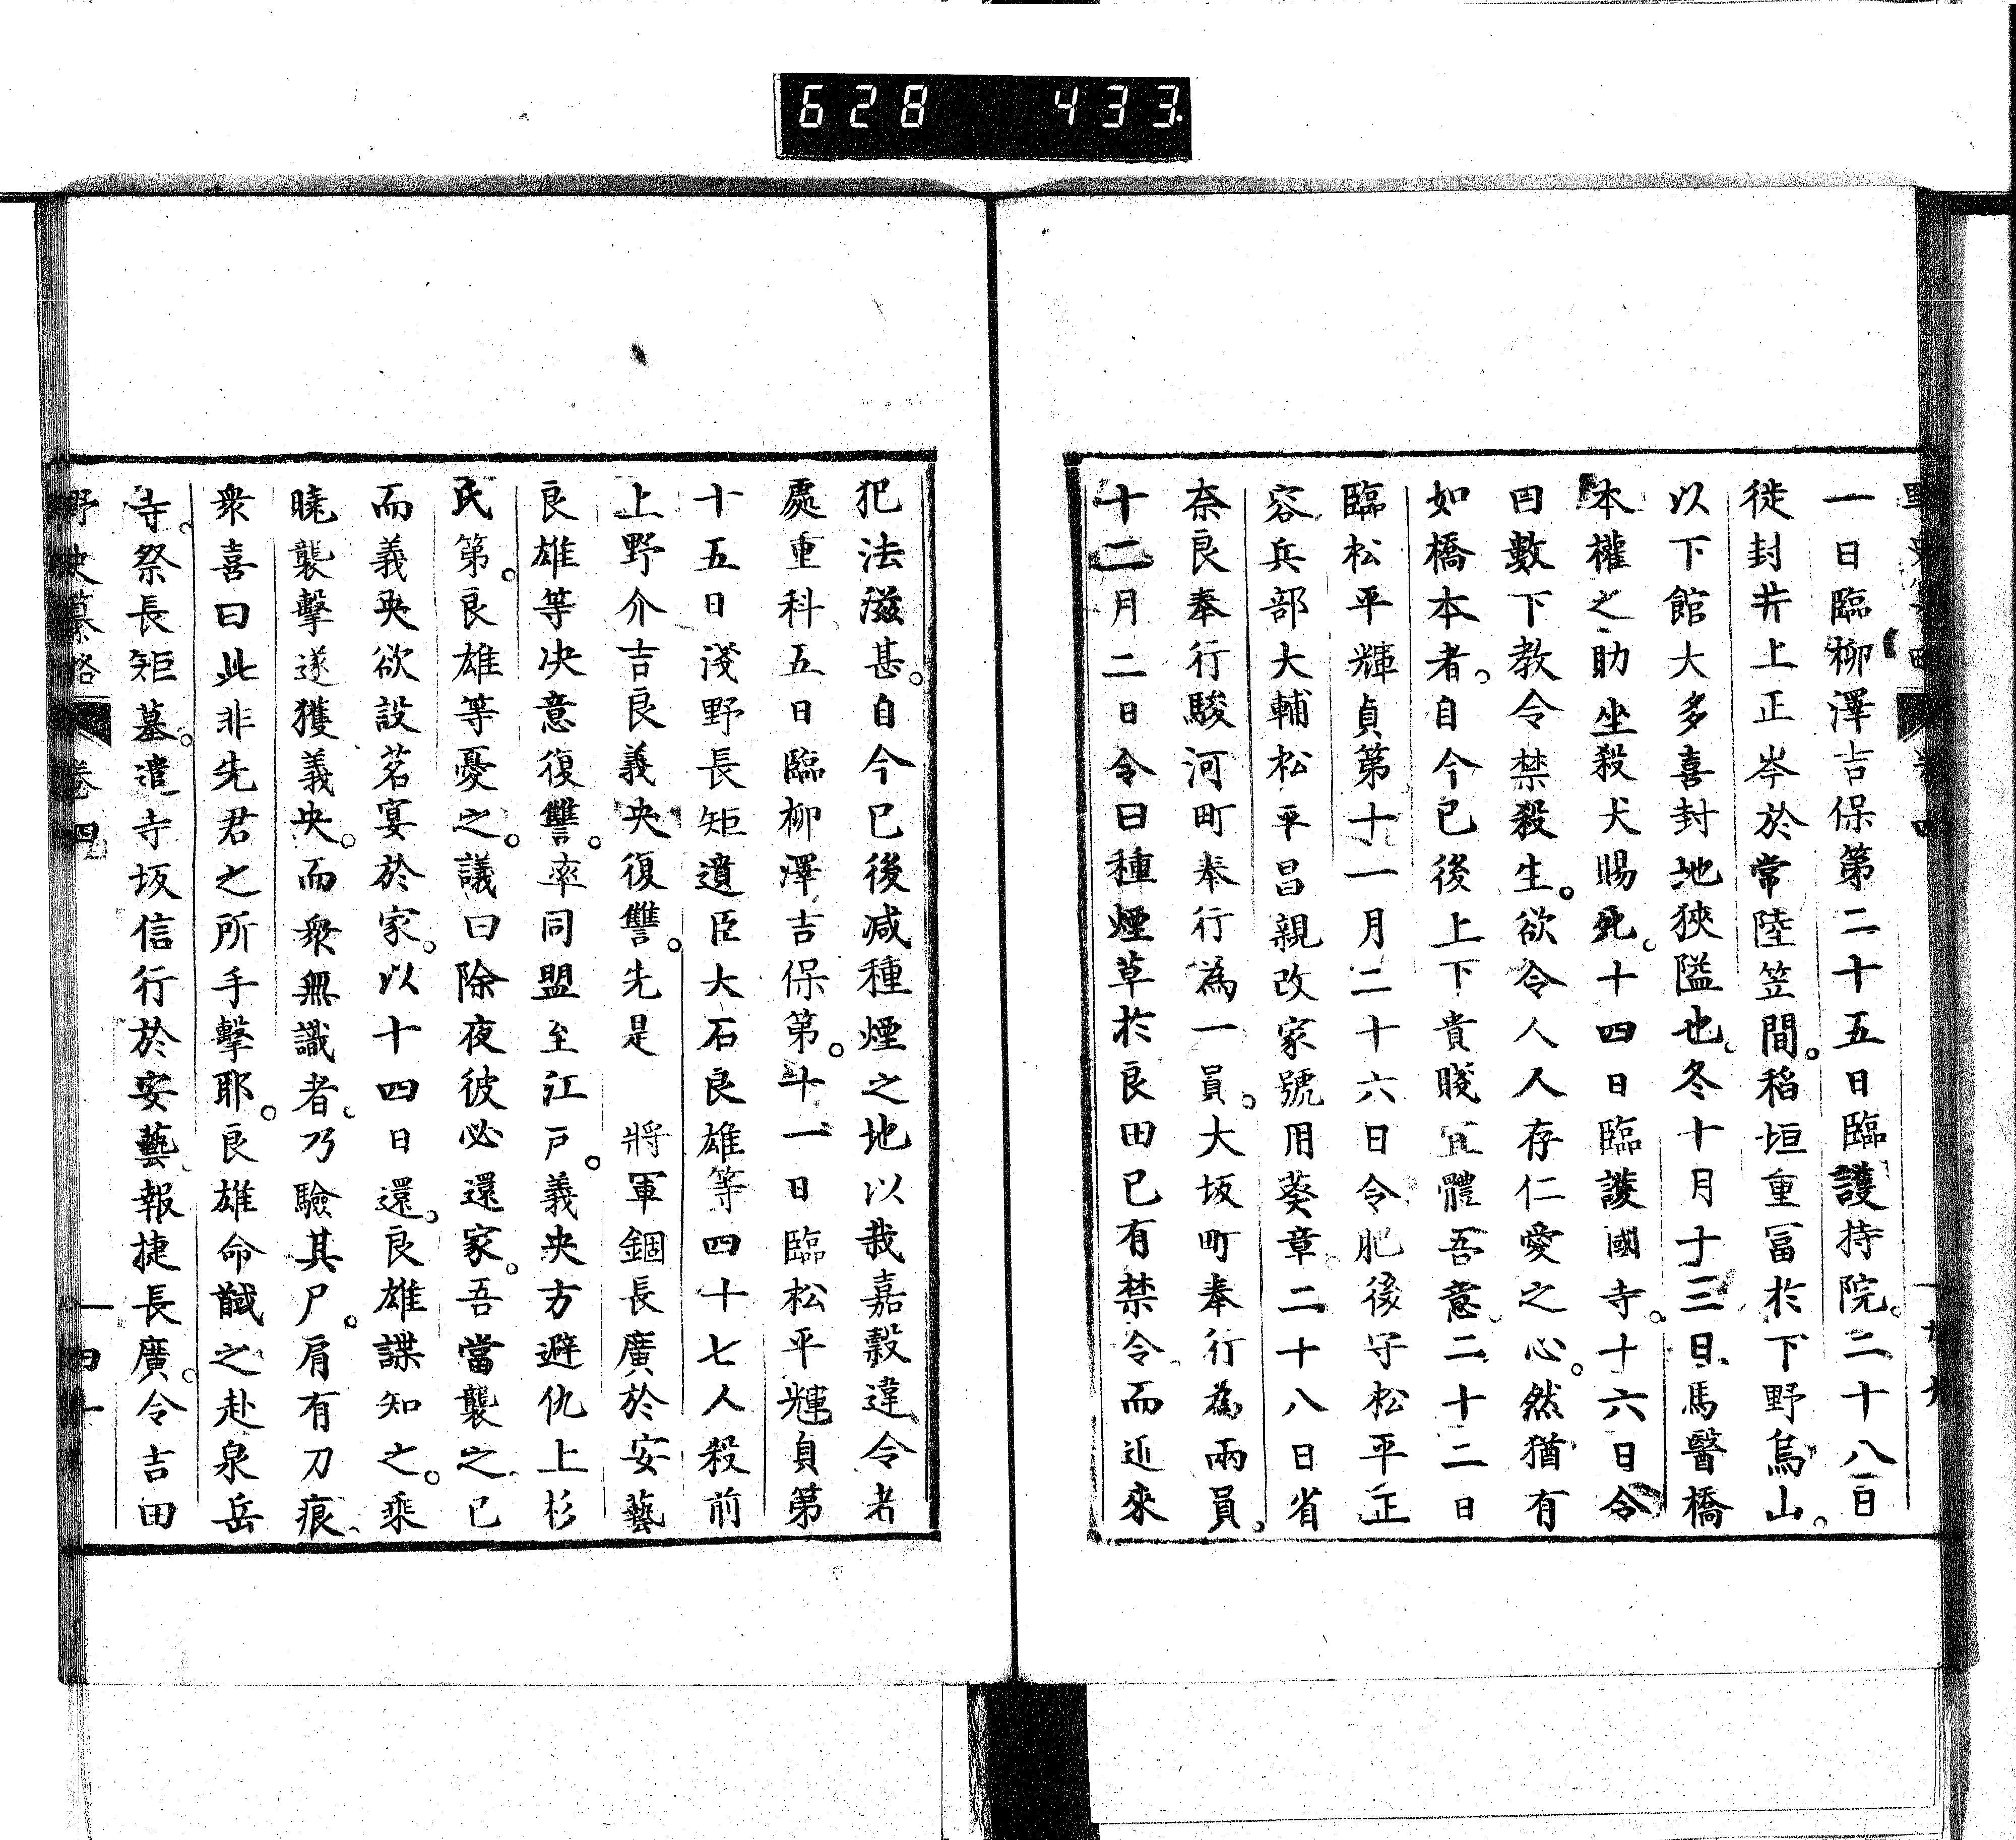 628 433
一日臨柳澤吉保第二十五日臨護持院。二十八日
徙封井上正岑於常陸笠間。稻垣重冨於下野烏山。
以下館大多喜封地狹隘也。冬十月十三日。馬醫橋
本權之助坐殺犬賜死。十四日臨護國寺。十六日令
曰數下教令禁殺生。欲令人人存仁愛之心。然猶有
如橋本者。自今已後上下貴賤宜體吾意。二十二日
臨松平輝貞第十一月二十六日令肥後守松平正
容兵部大輔松平昌親改家號用葵章。二十八日省
奈良奉行駿河町奉行為一員。大坂町奉行為兩員。
十二月二日令曰種煙草於良田已有禁令。而近來
犯法滋甚。自今已後减種煙之地以栽嘉穀違令者
處重科五日臨柳澤吉保第。十一日臨松平輝貞第
十五日淺野長矩遺臣大石良雄等四十七人殺前
上野介吉良義央復讐。先是 將軍錮長廣於安藝
良雄等决意復讐。率同盟至江戸。義央方避仇上杉
氏第。良雄等憂之。議曰除夜彼必還家。吾當襲之。已
而義央欲設茗宴於家。以十四日還。良雄諜知之。乘
曉襲擊遂獲義央。而衆無識者。乃驗其尸。肩有刀痕。
衆喜曰此非先君之所手擊耶。良雄命馘之赴泉岳
寺。祭長矩墓。遣寺坂信行於安藝。報捷長廣。令吉田
野史纂略 卷四 一四十